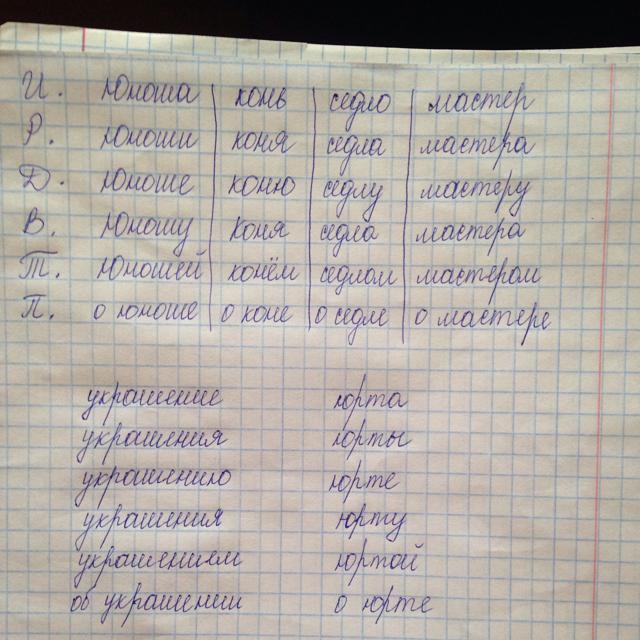 И. Юноша конь седло мастер
Р. Юноши коня седла мастера
Д. Юноше коню седлу мастеру
В. Юношу коня седло мастера
Т. Юношей конём седлом мастером
П. о юноше о коне о седле о мастере
украшение юрта
украшения юрты
украшению юрте
украшения юрту
украшением юртой
об украшении о юрте